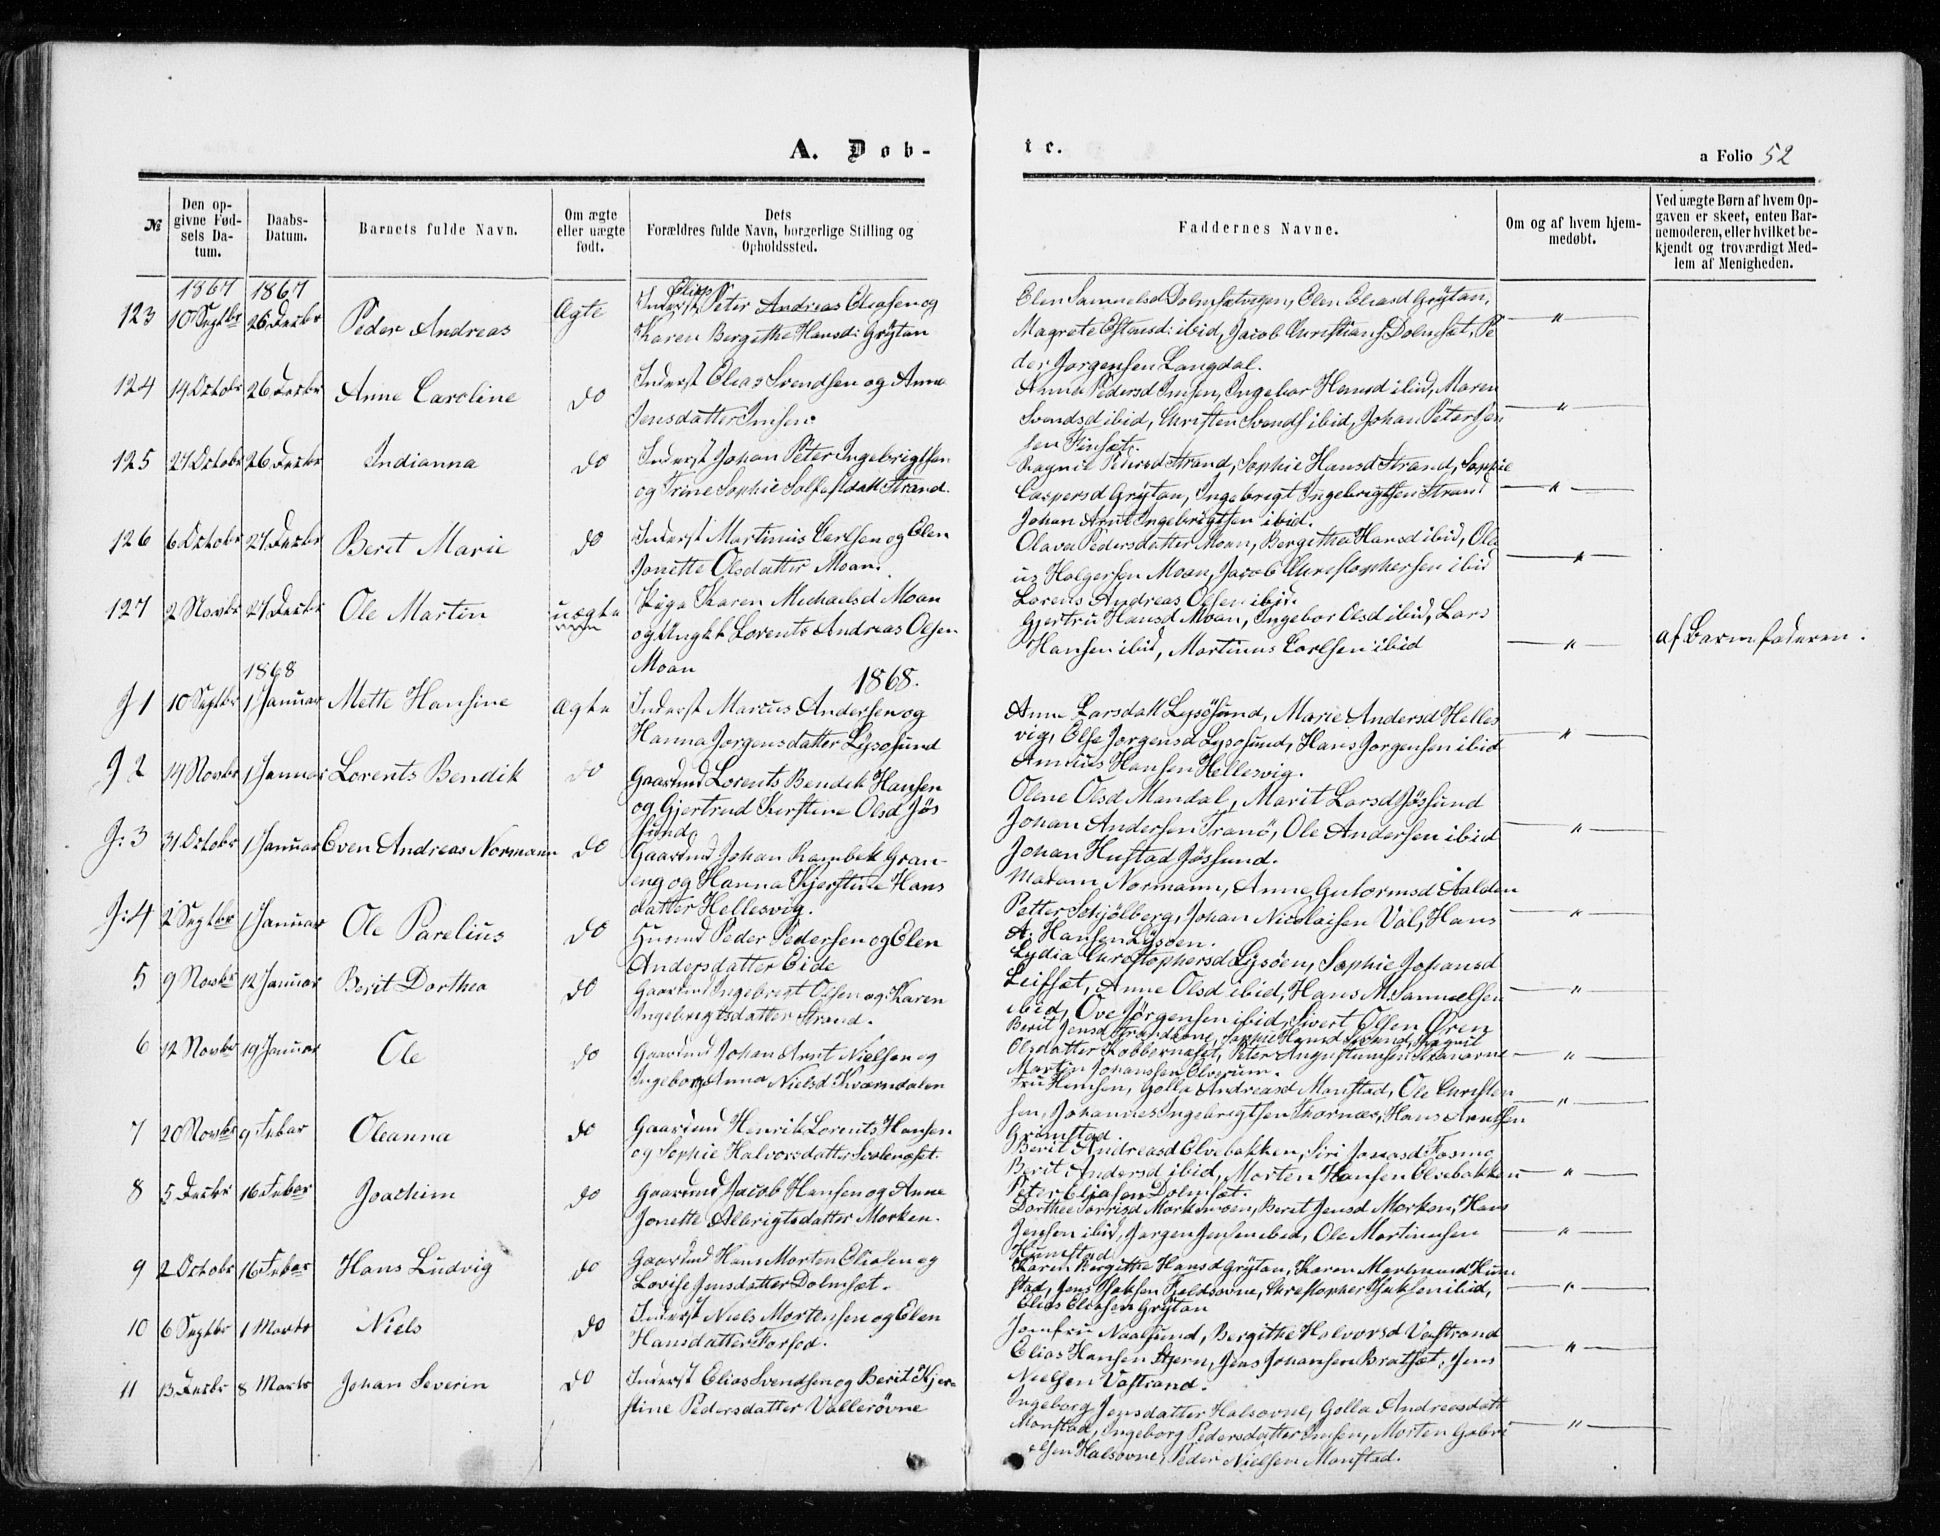 A. Døb-
te.
a Folio 52
№
Den opgivne Fødsels Datum.
Daabs-Datum.
Barnets fulde Navn.
Om ægte eller uægte født.
Dets Forældres fulde Navn, borgerlige Stilling og Opholdssted.
Faddernes Navne.
Om og af hvem hjemmedøbt.
Ved uægte Børn af hvem Opgaven er skeet, enten Barnemoderen, eller hvilket bekjendt og troværdigt Medlem af Menigheden.
1867 1867
123 10 Septbr 26 Decbr Peder Andreas Ægte
Elias
Inderst Peter Andreas Eliasen og
Karen Bergithe Hansd: Grÿtan
Elen Samuelsd Dolmsætvegen, Elen Eliasd Grÿtan,
Magrete ibid, Jacob Christians Dolmsæt, Pe
der Jorgensen Langdal.
124 19 Octobr 26 Decbr Anne Caroline do
Inderst Elias Svendsen og Anne
Jensdatter Imsen
Anna Pedersd Imsen, Ingebor Hansd ibid, Maren
Svendsd ibid, Christen Svends ibid, Johan Peter
125 27 Octobr 26 Decbr Indianna do
Inderst Johan Peter Ingebrigtsen
og Trine Sophie Strand.
Ragnil Strand, Sophie Hansd Strand, Sophie
Caspersd Grÿtan, Ingebrigt Ingebrigtsen Strand
Johan Arnt Ingebrigtsen ibid.
126 6 Octobr 27 Decbr Berit Marie do
Inderst Martinus Carlsen og Elen
Jonette Olsdatter Moan.
Olava Pedersdatter Moan, Bergitha Hansd ibid, Ola
us Holgersen Moan, Jacob Christophersen ibid
Lorents Andreas Olsen ibid.
127 2 Novbr 27 Decbr Ole Martin uægte
Pige Karen Michaelsd Moan
og Ungkl Lorents Andreas Olsen
Moan
Gjertru Hansd Moan, Ingebor Olsd ibid, Lars
Hansen ibid, Martinus Carlsen ibid
af Barnefaderen.
1868 1868.
J 1 10 Septbr 1 Januar Mette Hansine Ægte
Inderst Marcus Andersen og
Hanna Jorgensdatter Lysøsund
Anne Larsdatt Lysösund, Marie Andersd Helles
vig, Else Jorgensd Lysosund, Hans Jorgensen ibid
Hansen Hellesvig.
J 2 14 Novbr 1 Januar Lorents Bendik do
Gaardmd Lorents Bendik Hansen
og Gjertrud Kerstine Olsd Jøs
sund
Olene Olsd Mandal, Marit Larsd Jøssund
Johan Andersen Tranö, Ole Andersen ibid
Johan Hustad Jøssund.
J: 3 31 Octobr 1 Januar Even Andreas Normann do
Gaardmd Johan Rambek Gran-
eng og Hanna Kjerstine Hans
datter Hellesvig.
Madam Normann, Anne Gutormsd Aalden
Petter Schjölberg, Johan Nicolaisen Val, Hans
A. Hansen Lysøen.
J: 4 2 Septbr 1 Januar Ole Parelius do
Husmd Peder Pedersen og Elen
Andersdatter Eide
Lydia Christophersd Lysöen, Sophie Johansd
Leifsæt, Anne Olsd ibid, Hans M. Samuelsen
ibid, Ove Jørgensen ibid, Sivert Olsen Ören
5 9 Novbr 12 Januar Berit Dorthea do
Gaardmd Ingebrigt Olsen og Karen
Ingebrigtsdatter Strand.
Berit Jensd Sophie Hansd Strand,
Olsdatter Kobbernæset, Peter
Martin Johansen Elverum.
6 12 Novbr 19 Januar Ole do
Gaardmd Johan Arnt Nielsen og
Ingeborg Anna Nielsd Kværndalen
Fru Hemsen, Golla Andreasd Monstad, Ole Christen
sen, Johannes Ingebrigtsen Thornæs, Hans Arntsen
Grønstad.
7 20 Novbr 9 Febar Oleanna do
Gaardmd Henrik Lorents Hansen
og Sophie Halvorsdatter
Berit Andreasd Elvebakken, Siri Jonasd Fosmo
Berit Andersd ibid, Morten Hansen Elvebakken
Peter Eliasen Dolmsæt.
8 5 Decbr 16 Febar Joachim do
Gaardmd Jacob Hansen og Anne
Jonette Albrigtsdatter Morken.
Dorthea Morkemoen, Berit Jensd Morken, Hans
Jensen ibid, Jorgen Jensen ibid, Ole Martinusen
Humstad
9 2 Octobr 16 Febar Hans Ludvig do
Gaardmd Hans Morten Eliasen og
Lovise Jensdatter Dolmsæt.
Karen Bergithe Hansd Grÿtan, Karen Hum
stad, Jens Fjeldsovne, Christopher ibid,
Elias Eliasen Grÿtan
10 6 Septbr 1 Marts Niels do
Inderst Niels Mortensen og Elen
Hansdatter
Jomfru Naalsund, Bergithe Halvorsd Vastrand
Elias Hansen Stjern, Jens Johansen Bratsæt, Jens
Nielsen Vastrand.
11 13 Decbr 8 Marts Johan Severin do
Inderst Elias Svendsen og Berit Kjer-
stine Pedersdatter Vallerövne
Ingeborg Jensdatter Halsovne, Golla Andreasdatt
Monstad, Ingeborg Pedersdatter Imsen, Morten Gabri
elsen Halsovne, Peder Nielsen Monstad.